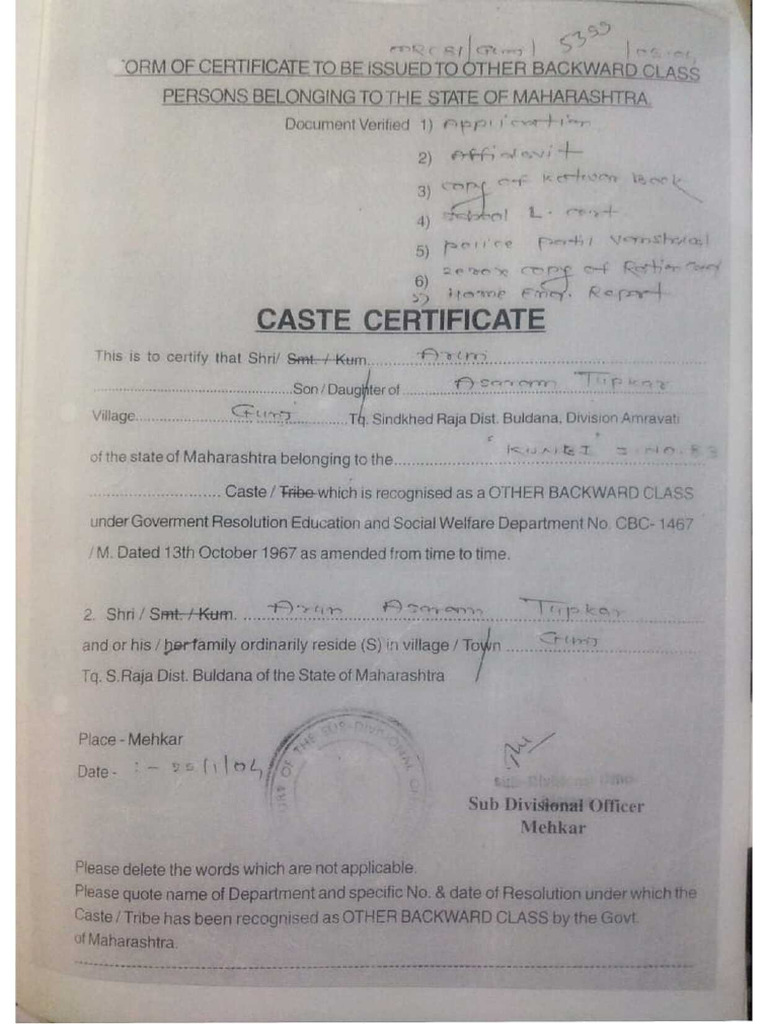 MRC81/Gunj/ 5399 /03-04
ORM OF CERTIFICATE TO BE ISSUED TO OTHER BACKWARD CLASS
PERSONS BELONGING TO THE STATE OF MAHARASHTRA
Document Verified 1) Application
2) Affidavit
3) Copy of Kotwar Book
4) School L. cert
5) police patil Vamshaval
6) copy of Ration Card
7) Home Enq. Report
CASTE CERTIFICATE
This is to certify that Shri/ Smt. / Kum. Arun
Son / Daughter of Asaram Tupkar
Village Gunj Tq. Sindkhed Raja Dist. Buldana, Division Amravati
of the state of Maharashtra belonging to the "KUNBI" S.No. 83
Caste / Tribe which is recognised as a OTHER BACKWARD CLASS
under Goverment Resolution Education and Social Welfare Department No. CBC- 1467
/ M. Dated 13th October 1967 as amended from time to time.
2. Shri / Smt. / Kum. Arun Asaram Tupkar
and or his / her family ordinarily reside (S) in village / Town Gunj
Tq. S.Raja Dist. Buldana of the State of Maharashtra
Place - Mehkar
Date - :- 22/1/04
OF THE SUB-DIVISIONAL
Sub Divisional Officer
Mehkar
Please delete the words which are not applicable.
Please quote name of Department and specific No. & date of Resolution under which the
Caste / Tribe has been recognised as OTHER BACKWARD CLASS by the Govt.
of Maharashtra.